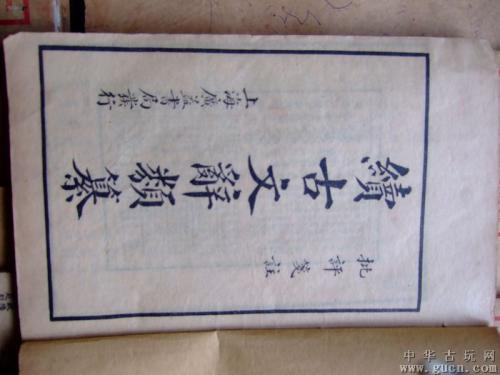 批評箋註
續古文辭類篹
上海廣益書局發行
中华古玩网
www.gucn.com